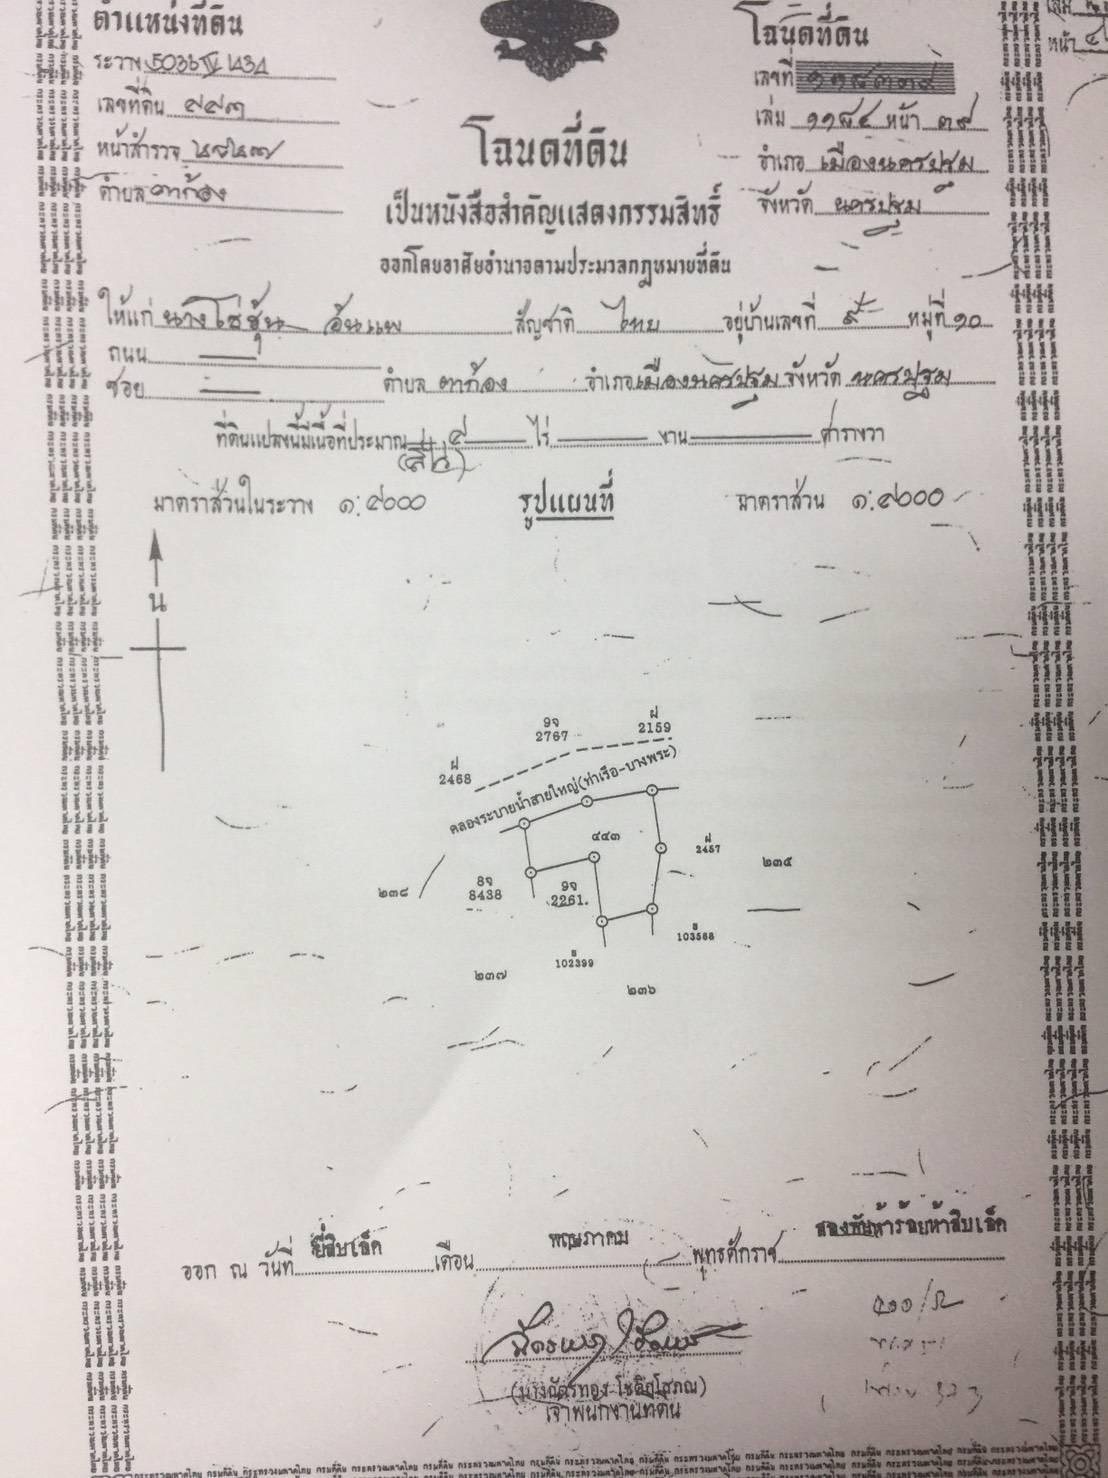 ตำแหน่งที่ดิน
ระวาง 5036 IV 1434
เลขที่ดิน ๔๔๓
หน้าสำรวจ
ตำบล ตาก้อง
โฉนดที่ดิน
เลขที่ ๑๑๘๓๓๙
เล่ม ๑๑๘๔ หน้า ๓๙
อำเภอ เมืองนครปฐม
จังหวัด นครปฐม
หน้า
โฉนดที่ดิน
เป็นหนังสือสำคัญแสดงกรรมสิทธิ์
ออกโดยอาศัยอำนาจตามประมวลกฎหมายที่ดิน
ให้แก่ นางโซ่ฮุ้น อ้นแพ สัญชาติ ไทย อยู่บ้านเลขที่ ๙ หมู่ที่ ๑๐
ถนน
ซอย ตำบล ตาก้อง อำเภอ เมืองนครปฐม จังหวัด นครปฐม
ที่ดินแปลงนี้มีเนื้อที่ประมาณ ๔ ไร่ งาน ตารางวา
(สี่ไร่)
มาตราส่วนในระวาง ๑:๔๐๐๐ รูปแผนที่ มาตราส่วน ๑:๔๐๐๐
น
ฝ 2468
9จ 2767
ฝ 2159
คลองระบายน้ำสายใหญ่(ท่าเรือ-บางพระ)
๔๔๓
ฝ 2457
๒๓๕
๒๓๘
8จ 8438
9จ 2261
103588
102399
๒๓๗
๒๓๖
ออก ณ วันที่ ยี่สิบเอ็ด เดือน พฤษภาคม พุทธศักราช สองพันห้าร้อยห้าสิบเอ็ด
(นางฉัตรทอง โชติกโสภณ)
เจ้าพนักงานที่ดิน